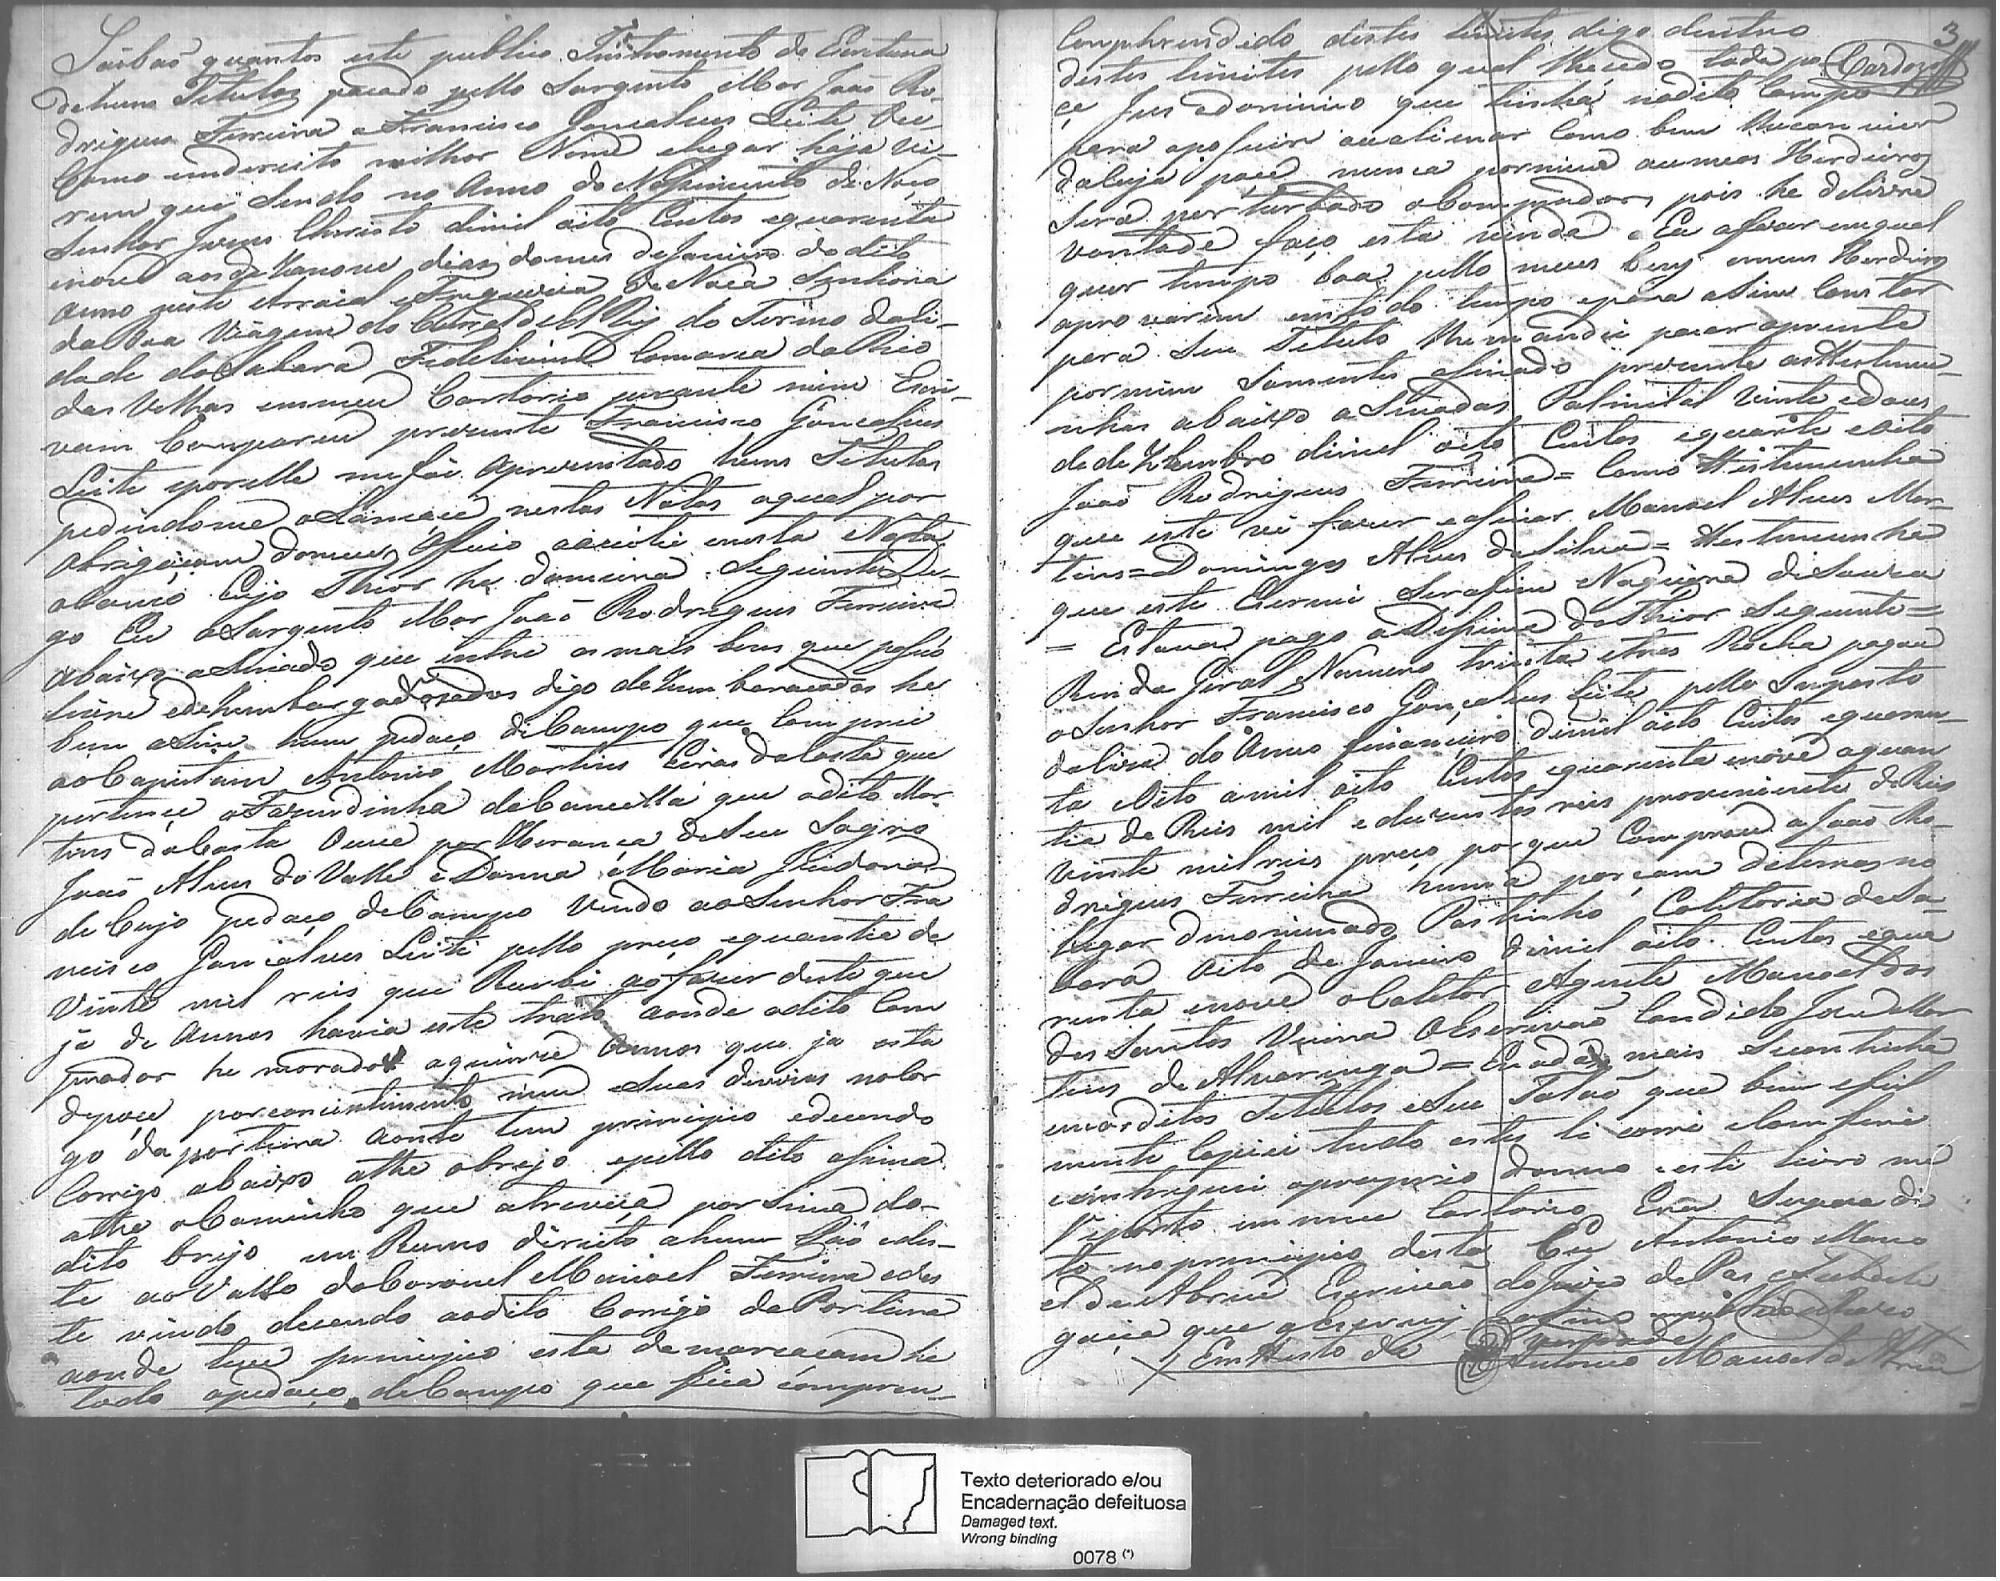 Saibaõ quantos este publico Instromento de Escritura
de huns Titulos pasado pello Sargento Mor Joaõ Ro-
drigues Ferreira a Francisco Gonçalves Leite Ou
Como emdereito milhor Nome elugar haja vi-
rem que Sendo no Anno do Nascimento de Noço
Senhor Jezus Christo dimil oito Centos equarenta
enove aos dezanove dias domes deJaneiro dodito
anno neste Arraial e Freguezia de Noça Senhora
daBoa Viagem do Curral del Rey do Termo daCi-
dade do Sabara Fidelicima Comarca do Rio
das Velhas emmeu Cartorio perante mim Escri-
vam Compareu prezente Francisco Gonçalves
Leite eporelle mefoi aprezentado huns Titulos
pedindome oLancaçe nestas Notas oqual por
obrigaçam domeu Officio aceitei enesta Nota
olancio Cujo Thior he damaneira Seguinte Di-
go Eu oSargento Mor Joaõ Rodrigues Ferreira
abaixo aSinado que entre os mais bens que pesuo
livre edezumbargados digo dezumbaraçadas he
bem aSim hum pedaço diCampo que Comprei
aoCapitam Antonio Martins daCosta que
pertençe aFazendinha daCancella que odito Mar-
tins daCosta Ouve por Herança deSeu Sogro
Joaõ Alves do Valle e Donna Maria
de Cujo pedaço deCampo Vendo aoSenhor Fra
ncisco Gonçalves Leite pello preço equantia de
Vinte mil reis que Recebi aofazer deste que
ja de Annos havia este trato aonde odito Com
prador he morador aquinze Annos que ja esta
deposse porconcentimento meu eSuas devizas nolor
go da porteira aonde tem principio edecendo
Corrigo abaixo athe obrejo epello dito asima
athe oCaminho que atraveça por Sima do-
dito brejo em Rumo direito ahum Páo edes-
te aoVallo doCoronel Manoel Ferreira edes
te vindo decendo aodito Corrigo daPorteira
aonde teve principio esta demarcaçam he
todo opedaço deCampo que fica compren-
3
Comphrendido destes limites digo dentro
Cardozo
destes limites pello qual lhecedo toda po
çe Jus edominio que tinha nodito Campo
para oposuir oualienar Como bem lhe comvier
daluja para nunca pormim aumeos Herdeiros
Será perturbado oComprador pois he delivre
vontade faço esta venda e Eu afazer em qual
quer tempo boa pello meus bens emeus Herdeiros
aprovarem emtodo tempo epara aSim Constar
para Seu Titulo lhemandei pasar oprezente
pormim Somente asinado prezente asttestemu-
nhas abaixo aSinadas Palmital Vinte edous
deDezembro dimil oito Centos equarenta eoito
Joaõ Rodrigues Ferreira = Como ttestemunha
que este vi fazer easinar Manoel Alves Mar-
tins = Domingos Alves daSilva = ttestemunha
que este Escrevi Serafim Nogueira diSouza
= Estava pago aDesima doThior Seguinte =
Renda Geral Numero trinta etres Rocha pagou
oSenhor Francisco Gonçalves Leite pello Imposto
daSiza do Anno finançeiro dimil oito Centos equaren-
ta eOito amil oito Centos equarenta enove aquan
tia de Reis mil eduzentos reis proveniente deReis
Vinte mil reis preço porque Comprou a Joaõ Ro-
drigues Ferreira huma porçam deterras no
lugar dinominado Pastinho Colletoria deSa-
bara Oito de Janeiro dimil oito Centos equa
renta enove oColletor Agente Manoel dos
dos Santos Vieira OEscrivaõ Candido Joze Mar
tins de Alvarenga = Enada mais Secontinha
emosditos Titulos eSeu Talaõ que bem efiel
mente Copiei tudo estes li corri eComferi
eintreguei aoproprio donno este livro me
Reporto emmeu Cartorio Era Supra di
to noprincipio desta Eu Antonio Mano
el de Abreu Escrivaõ doJuizo dePas eSubdele
gaçia que oEscrevy easino empublico eRazo
Em ttesto de verdade
Antonio Manoel de Abreu
Texto deteriorado e/ou
Encadernação defeituosa
Damaged text.
Wrong binding
0078 (*)